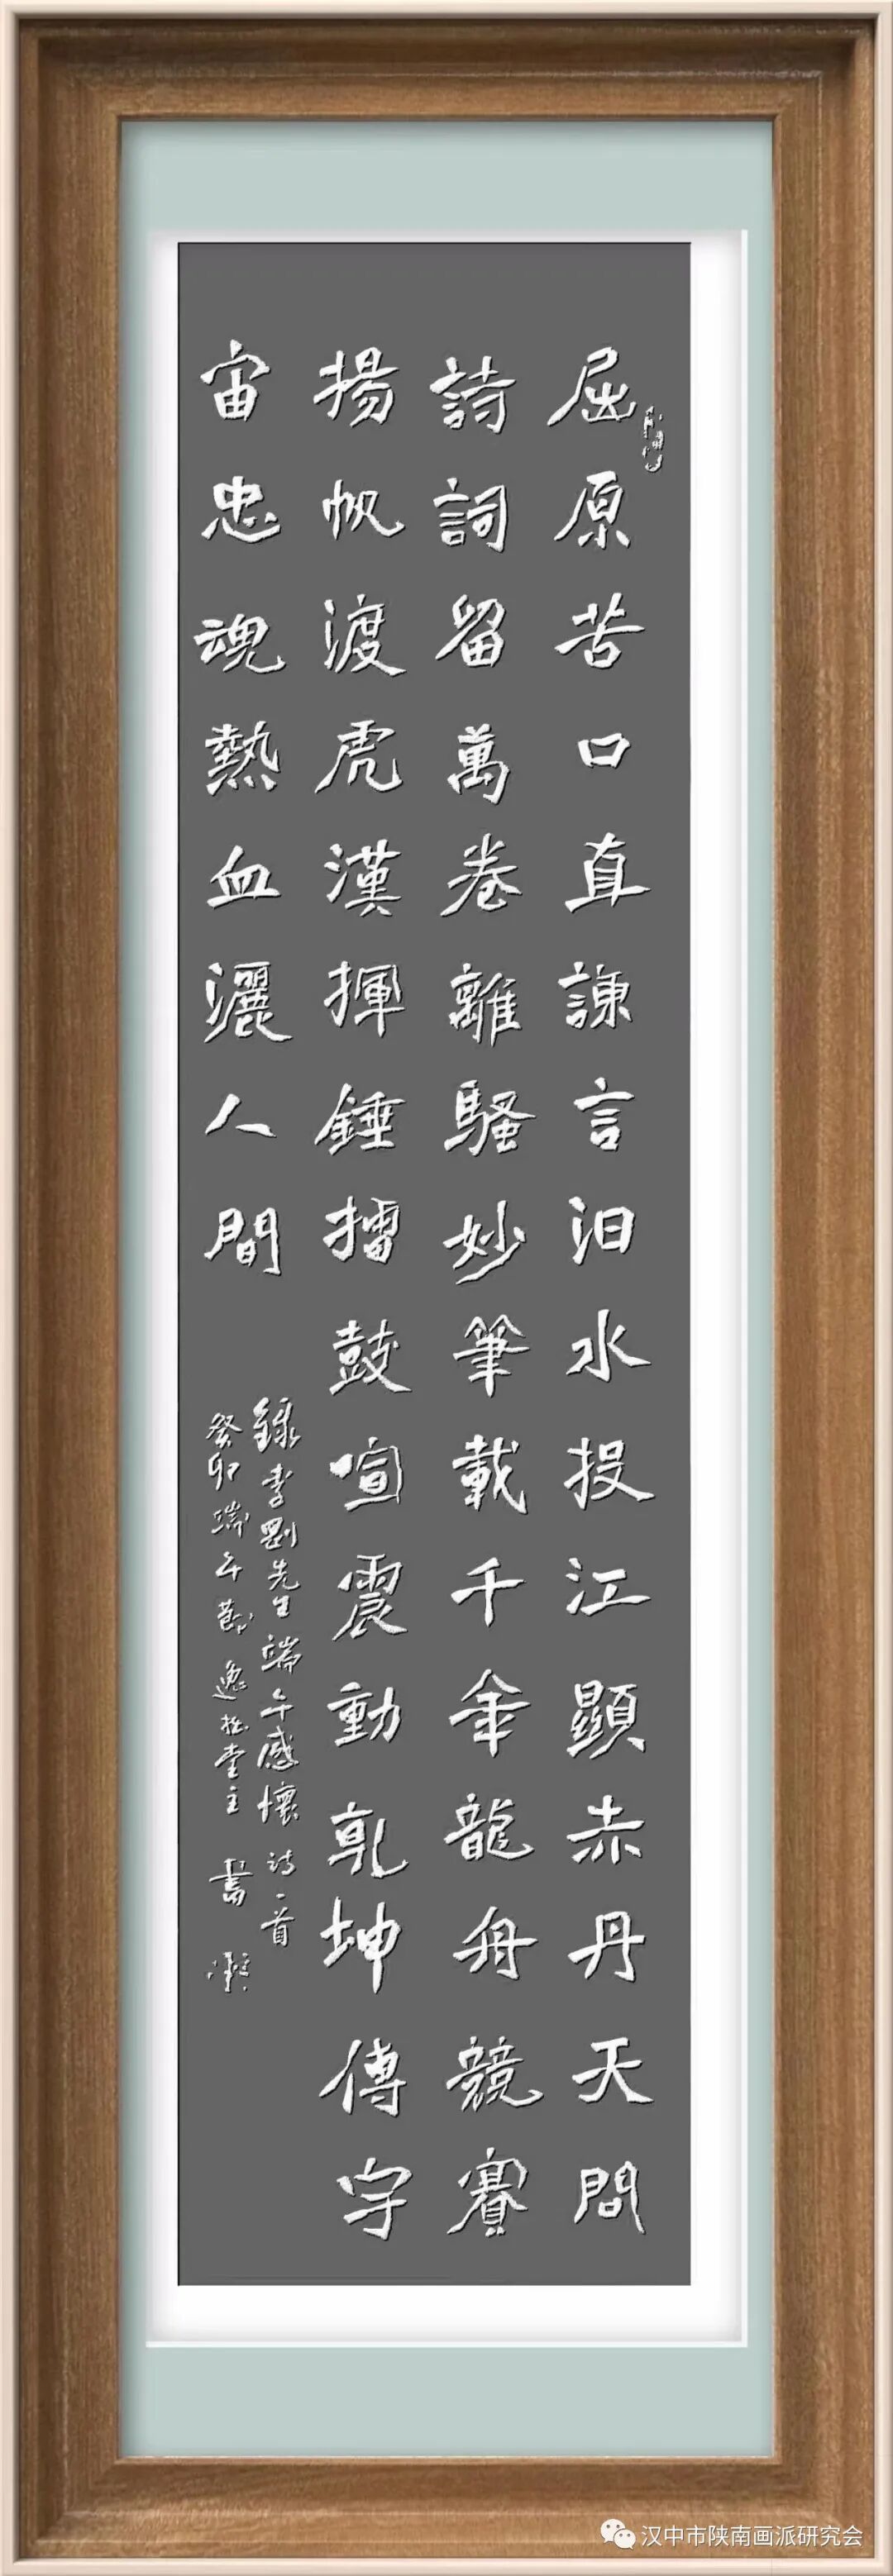 屈原苦口直諫言汨水投江顯赤丹天問
詩詞留萬卷離騷妙筆載千年龍舟競賽
揚帆渡虎漢揮錘擂鼓喧震動乾坤傳宇
宙忠魂熱血灑人間
錄李剛先生端午感懷詩一首
癸卯端午節逸 堂主書
汉中市陕南画派研究会